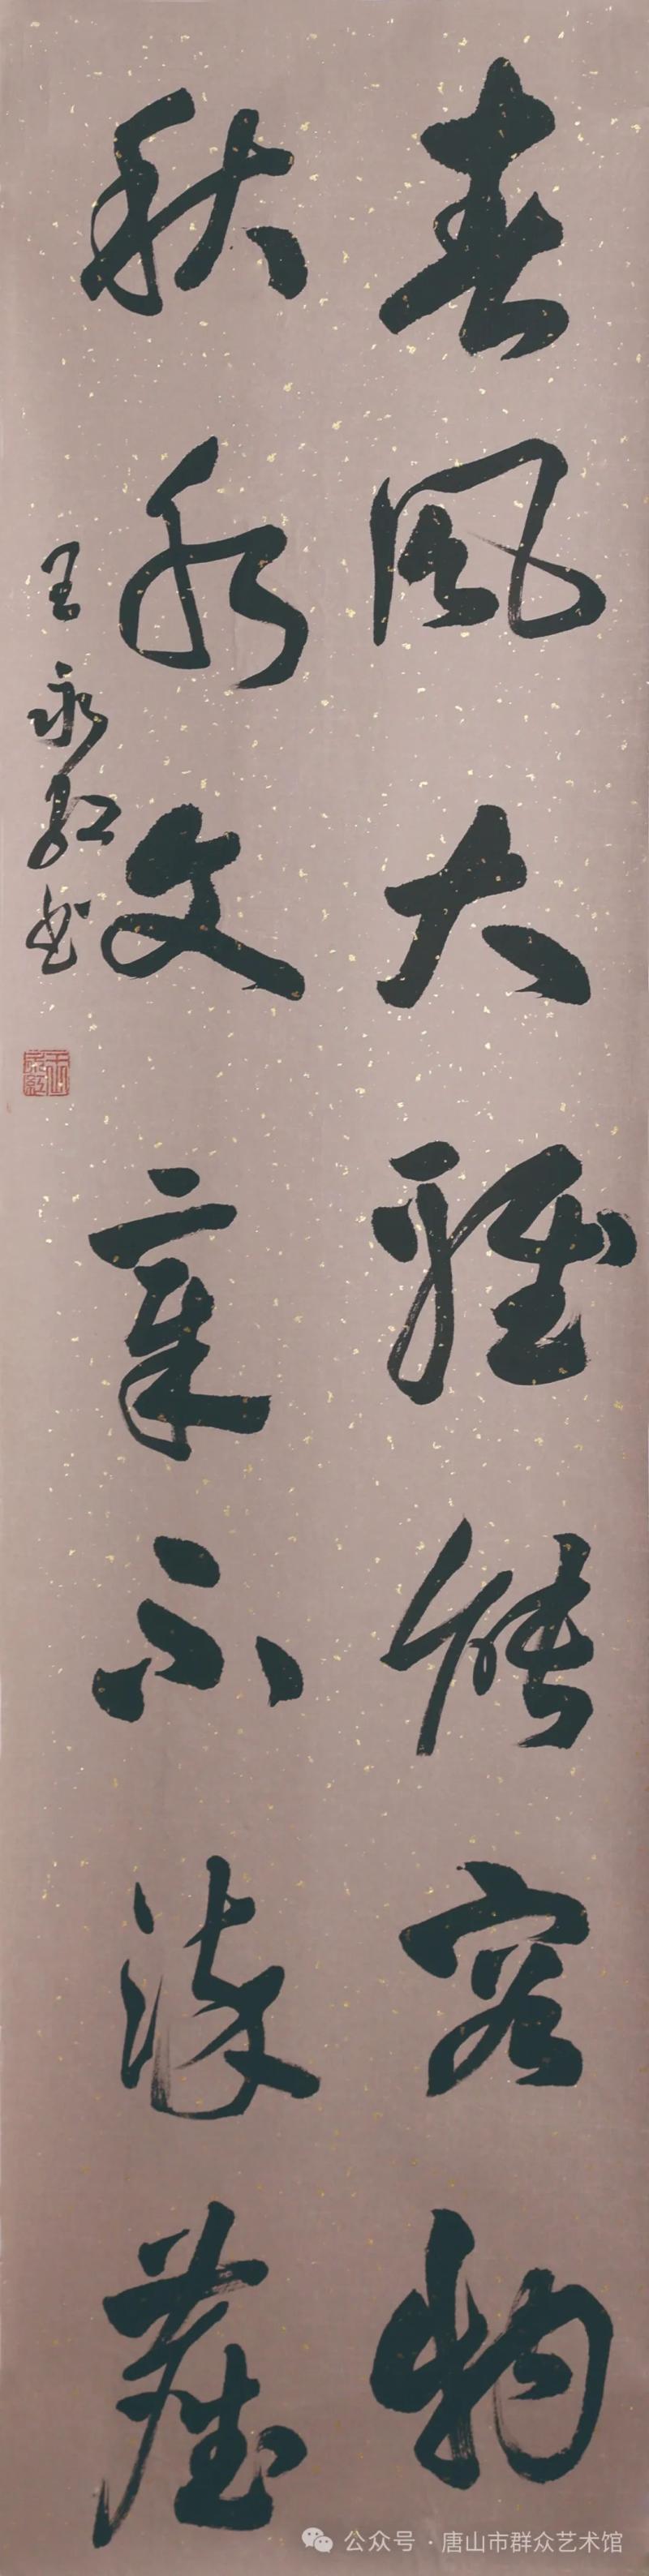 春风大雅能容物
秋水文章不染尘
王永红书
王永红
公众号·唐山市群众艺术馆